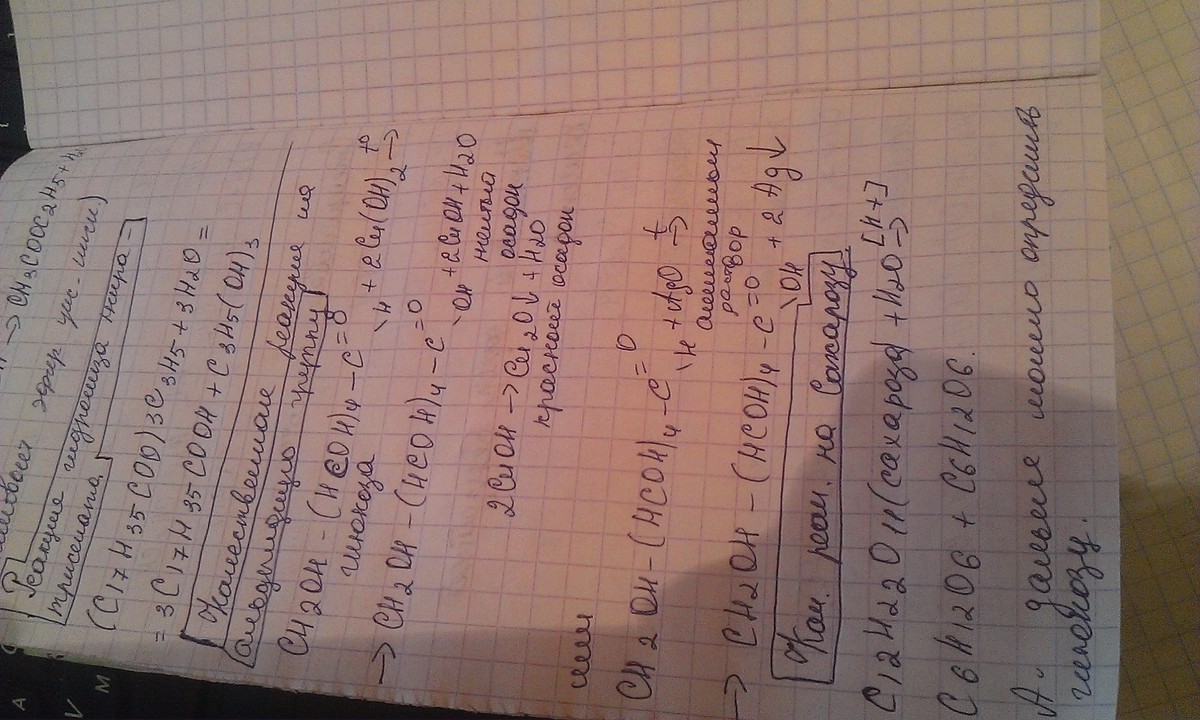 → CH3COOC2H5 + H2
эфир укс-кисл)
Реакция гидролиза жира -
тристеата
(C17H35COO)3C3H5 + 3H2O =
= 3C17H35COOH + C3H5(OH)3
Качественная реакция на
альдегидную группу
CH2OH - (HCOH)4 - C = O
\ H + 2Cu(OH)2 t° →
глюкоза
→ CH2OH - (HCOH)4 - C = O
\ OH + 2CuOH + H2O
желтый
осадок
2CuOH → Cu2O↓ + H2O
красный осадок
или
CH2OH - (HCOH)4 - C = O
\ H + Ag2O t →
аммиачный
раствор
→ CH2OH - (HCOH)4 - C = O
\ OH + 2Ag↓
Кач. реак. на Сахарозу
C12H22O11 (сахароза) + H2O [H+] →
C6H12O6 + C6H12O6.
А дальше можно определить
глюкозу.
A
V
M